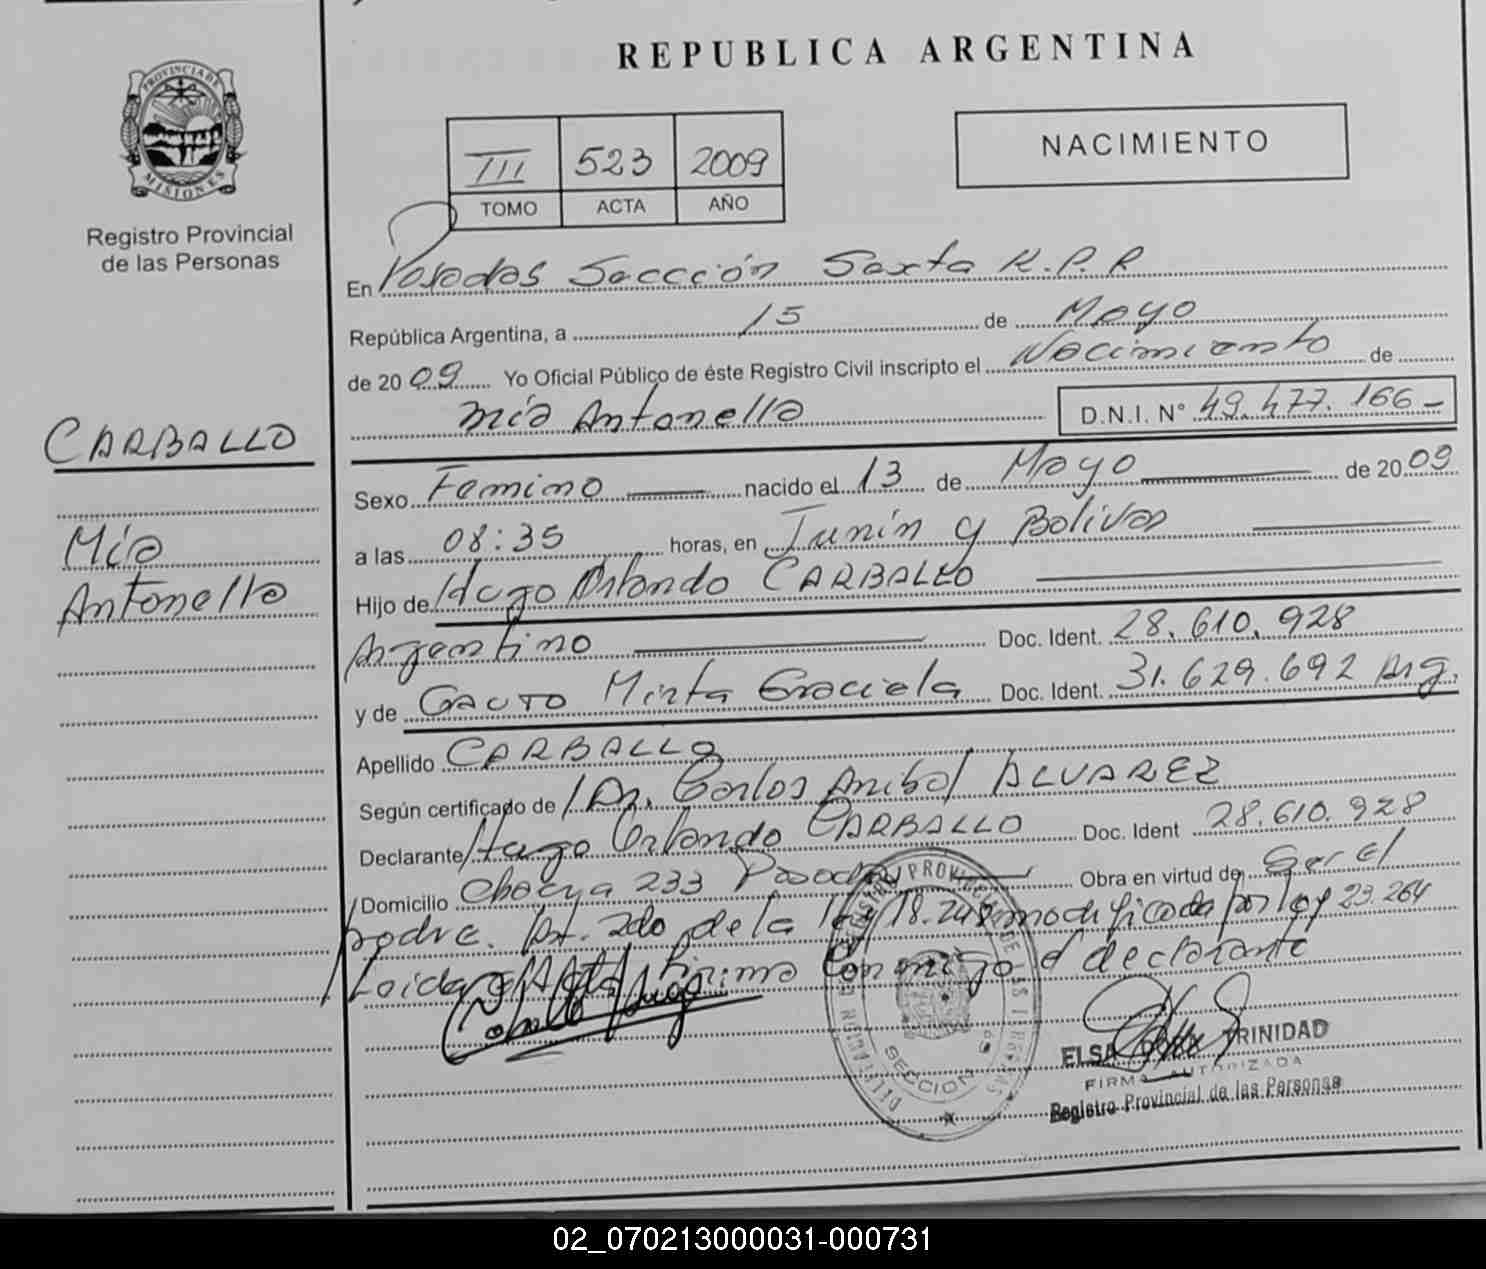 REPUBLICA ARGENTINA
PROVINCIA DE
MISIONES
Registro Provincial
de las Personas
III 523 2009
TOMO ACTA AÑO
NACIMIENTO
En Posadas Sección Sexta R.P.P
República Argentina, a 15 de Mayo
de 2009 Yo Oficial Público de éste Registro Civil inscripto el Nacimiento de
Mía Antonella D.N.I. N° 49.477.166-
CARBALLO
Mía
Antonella
Sexo Femino nacido el 13 de Mayo de 2009
a las 08:35 horas, en Junín y Bolivar
Hijo de Hugo Orlando CARBALLO
Argentino Doc. Ident. 28.610.928
y de GAUTO Mirta Graciela Doc. Ident. 31.629.692 Arg.
Apellido CARBALLO
Según certificado de Dr. Carlos Anibal ALVAREZ
Declarante Hugo Orlando CARBALLO Doc. Ident 28.610.928
Domicilio 233 Posadas Obra en virtud de Ser el
padre. Art. 2do de la ley 18.248 modificada por ley 23.264
Leida el Acta Firma Conmigo el declarante
SECCION 6ª
ELSA TRINIDAD
FIRMA AUTORIZADA
Registro Provincial de las Personas
02_070213000031-000731